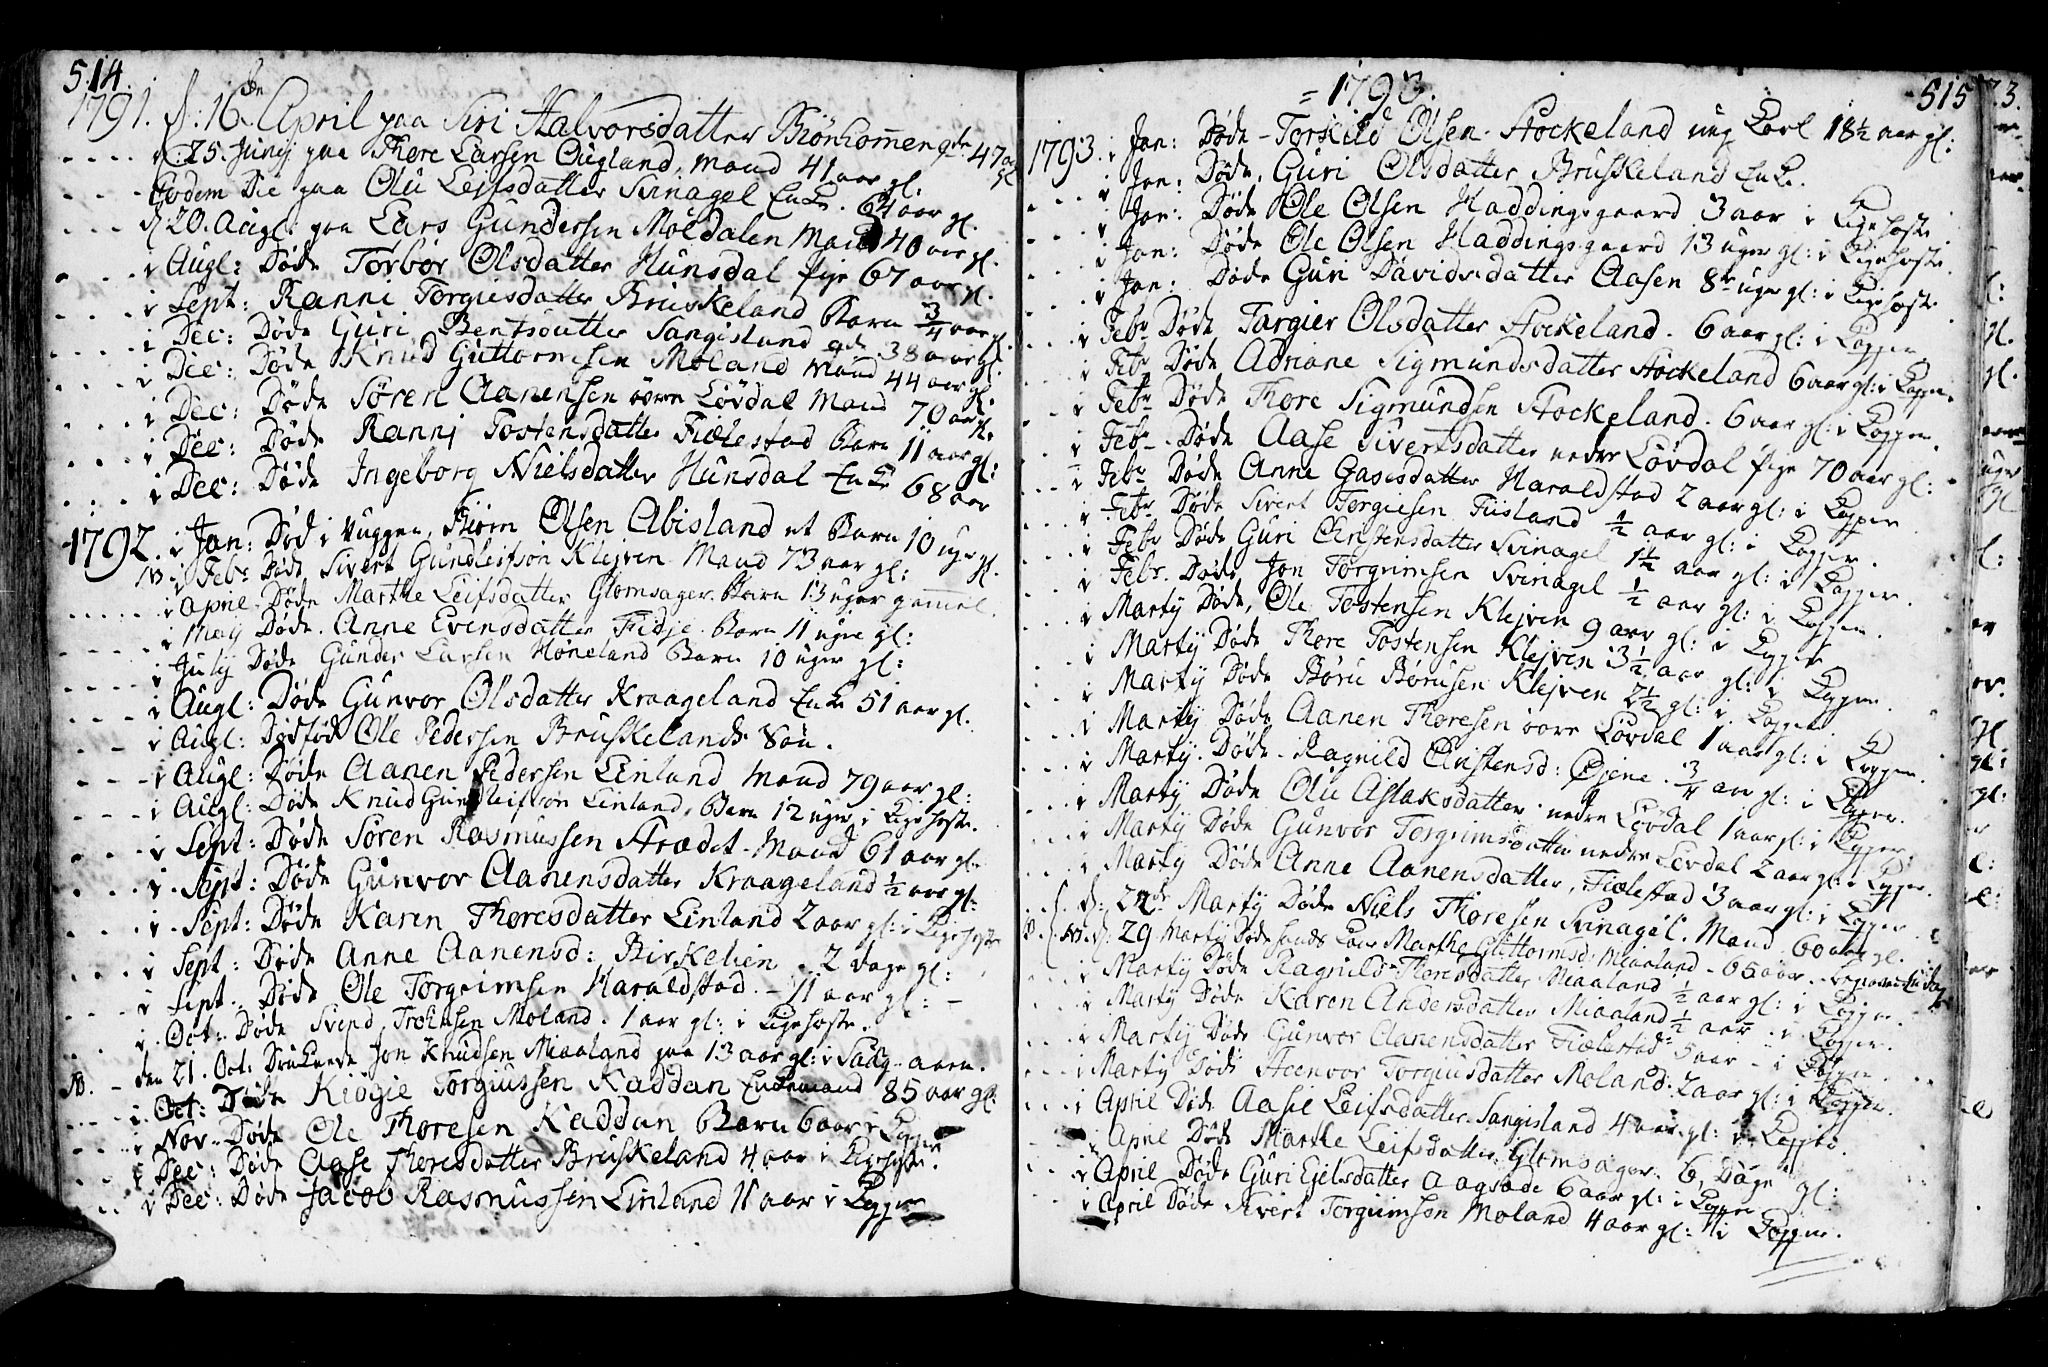 514.
1791. d: 16de April paa Siri Halvorsdatter Biønhommen gde 47 aar gl
d: 25. Junij paa Thore Larsen Ougland, Mand 41 aar gl.
Eodem Die paa Olu Leifsdatter Svinagel Enke. 64 aar gl.
d 20. Augl: paa Lars Gundersen Møldalen Mand 40 aar gl.
i Augl: Døde Torbør Olsdatter Hunsdal Pige 67 aar gl.
i Sept: Ranni Torgiusdatter Bruskeland Barn 3/4 aar gl.
i Dec: Døde Guri Bentsdatter Sangisland gde 38 aar gl.
i Dec: Døde Knud Guttormsen Moland Mand 44 aar gl.
i Dec: Døde Søren Aanensen øvre Løvdal Mand 70 aar gl.
i Dec: Døde Rannj Tostensdatter Fiælestad Barn 11 aar gl:
i Dec: Døde Ingeborg Nielsdatter Hunsdal Enke 68 aar
1792. i Jan: Død i Vuggen, Biørn Olsen Abisland et Barn 10 uger gl.
NB i Febr. Døde Sivert Gundleifsøn Klejven Mand 73 aar gl:
i April. Døde Marthe Leifsdatter Glomsager Barn 13 uger gammel.
i Maij Døde. Anne Evensdatter Fidje. Barn 11 uger gl:
i July Døde Gunder Larsen Høneland Barn 10 uger gl:
i Augl: Døde Gunvor Olsdatter Kraageland Enke 51 aar gl.
i Augl: Dødfød Ole Pedersen Bruskelands Søn.
i Augl: Døde Aanen Pedersen Einland Mand 79 aar gl:
i Augl: Døde Knud Gundleifsøn Einland, Barn 12 uger i Kighoste.
i Sept: Døde Søren Rasmussen Strædet. Mand 61 aar gl.
i Sept: Døde Gunvor Aanensdatter Kraageland 1/2 aar gl:
i Sept: Døde Karen Thoresdatter Einland 2 aar gl: i Kighoste
i Sept: Døde Anne Aanensd: Birkelien - 2 dage gl:
i Sept. Døde Ole Torgrimsen Haraldstad. - 11 aar gl: -
i Oct: Døde Svend Trohnsen Moland. 1 aar gl: i Kighoste.
den 21. Oct: Druknede Jon Knudsen Miaaland paa 13 aar gl: i aaen.
NB. - i Oct: Døde Kiøgie Torgiussen Kaddan Enkemand 85 aar gl:
i Nov. Døde Ole Thoresen Kaddan Barn 6 aar i Kopper
i Dec: Døde Aase Thoresdatter Bruskeland 4 aar i Kighoste.
i Dec: Døde Jacob Rasmussen Einland 11 aar i Kopper
= 1793. 515
1793. i Jan: Døde - Torkild Olsen. Stockeland ung Karl 18 1/2 aar gl:
i Jan: Døde, Guri Olsdatter Bruskeland Enke.
i Jan: Døde Ole Olsen Haddingsgaard 3 aar i Kighoste
i Jan: Døde Ole Olsen Haddingsgaard 13 uger gl: i Kighoste
i Jan: Døde Guri Davidsdatter Aasen 8te uger gl: i Kighoste
i Febr Døde Targier Olsdatter Stockeland. 6 aar gl: i Kopper
i Febr Døde Adriane Sigmundsdatter Stockeland 6 aar gl: i Kopper.
i Febr Døde Thore Sigmundsen Stockeland. 6 aar gl: i Kopper
i Febr Døde Aase Sivertsdatter nedre Løvdal Pige 70 aar gl:
i Febr Døde Anne Gasesdatter Haraldstad 2 aar gl: i Kopper
i Febr Døde Sivert Torgiesen Fiisland 1/2 aar gl: i Kopper
i Febr Døde Guri Christensdatter Svinagel 1 1/2 aar gl: i Kopper
i Febr. Døde Jon Torgrimsen Svinagel 1/2 aar gl: i Kopper.
i Marty Døde, Ole Tostensen Klejven 9 aar gl: i Kopper.
i Marty Døde Thore Tostensen Klejven 3 1/2 aar gl: i Kopper
i Marty Døde Børu Børusen Klejven 2 1/2 gl: i Kopper.
i Marty Døde Aanen Thoresen øvre Løvdal 1 aar gl: i Kopper
i Marty. Døde. Ragnild Christensd: Øjene. 3/4 aar gl: i Kopper.
i Marty Døde Olu Aslaksdatter nedre Løvdal 1 aar gl: i Kopper.
i Marty Døde Gunvor Torgrimsdatter nedre Løvdal 2 aar gl: i Kopper.
i Marty Døde Anne Aanensdatter, Fiælestad 3 aar gl: i Kopper.
d: 22de Marty Døde Niels Thoresen Svinagel. Mand. 60 aar gl.
NB. d: 29 Marty Døde Marthe Guttormsd: Miaaland - 65 aar.
i Marty Døde Ragnild Thoresdatter Miaaland 1/2 aar gl: i Kopper
i Marty Døde Karen Andersdatter Miaaland 1/2 aar. i Kopper
i Marty Døde Gunvor Aanensdatter Fiælestad 5 aar - i Kopper
i Marty Døde Steenvor Torgiusdatter Moland. 2 aar gl: i Kopper.
i April Døde Aasie Leifsdatter Sangisland 4 aar gl: i Kopper.
i April Døde Marthe Leifsdatter Glomsager. 6. Dage gl:
i April Døde Guri Ejelsdatter Aagsøde 6 aar gl: i Kopper
i April Døde Sivert Torgrimsen Moland 4 aar gl: i Kopper.